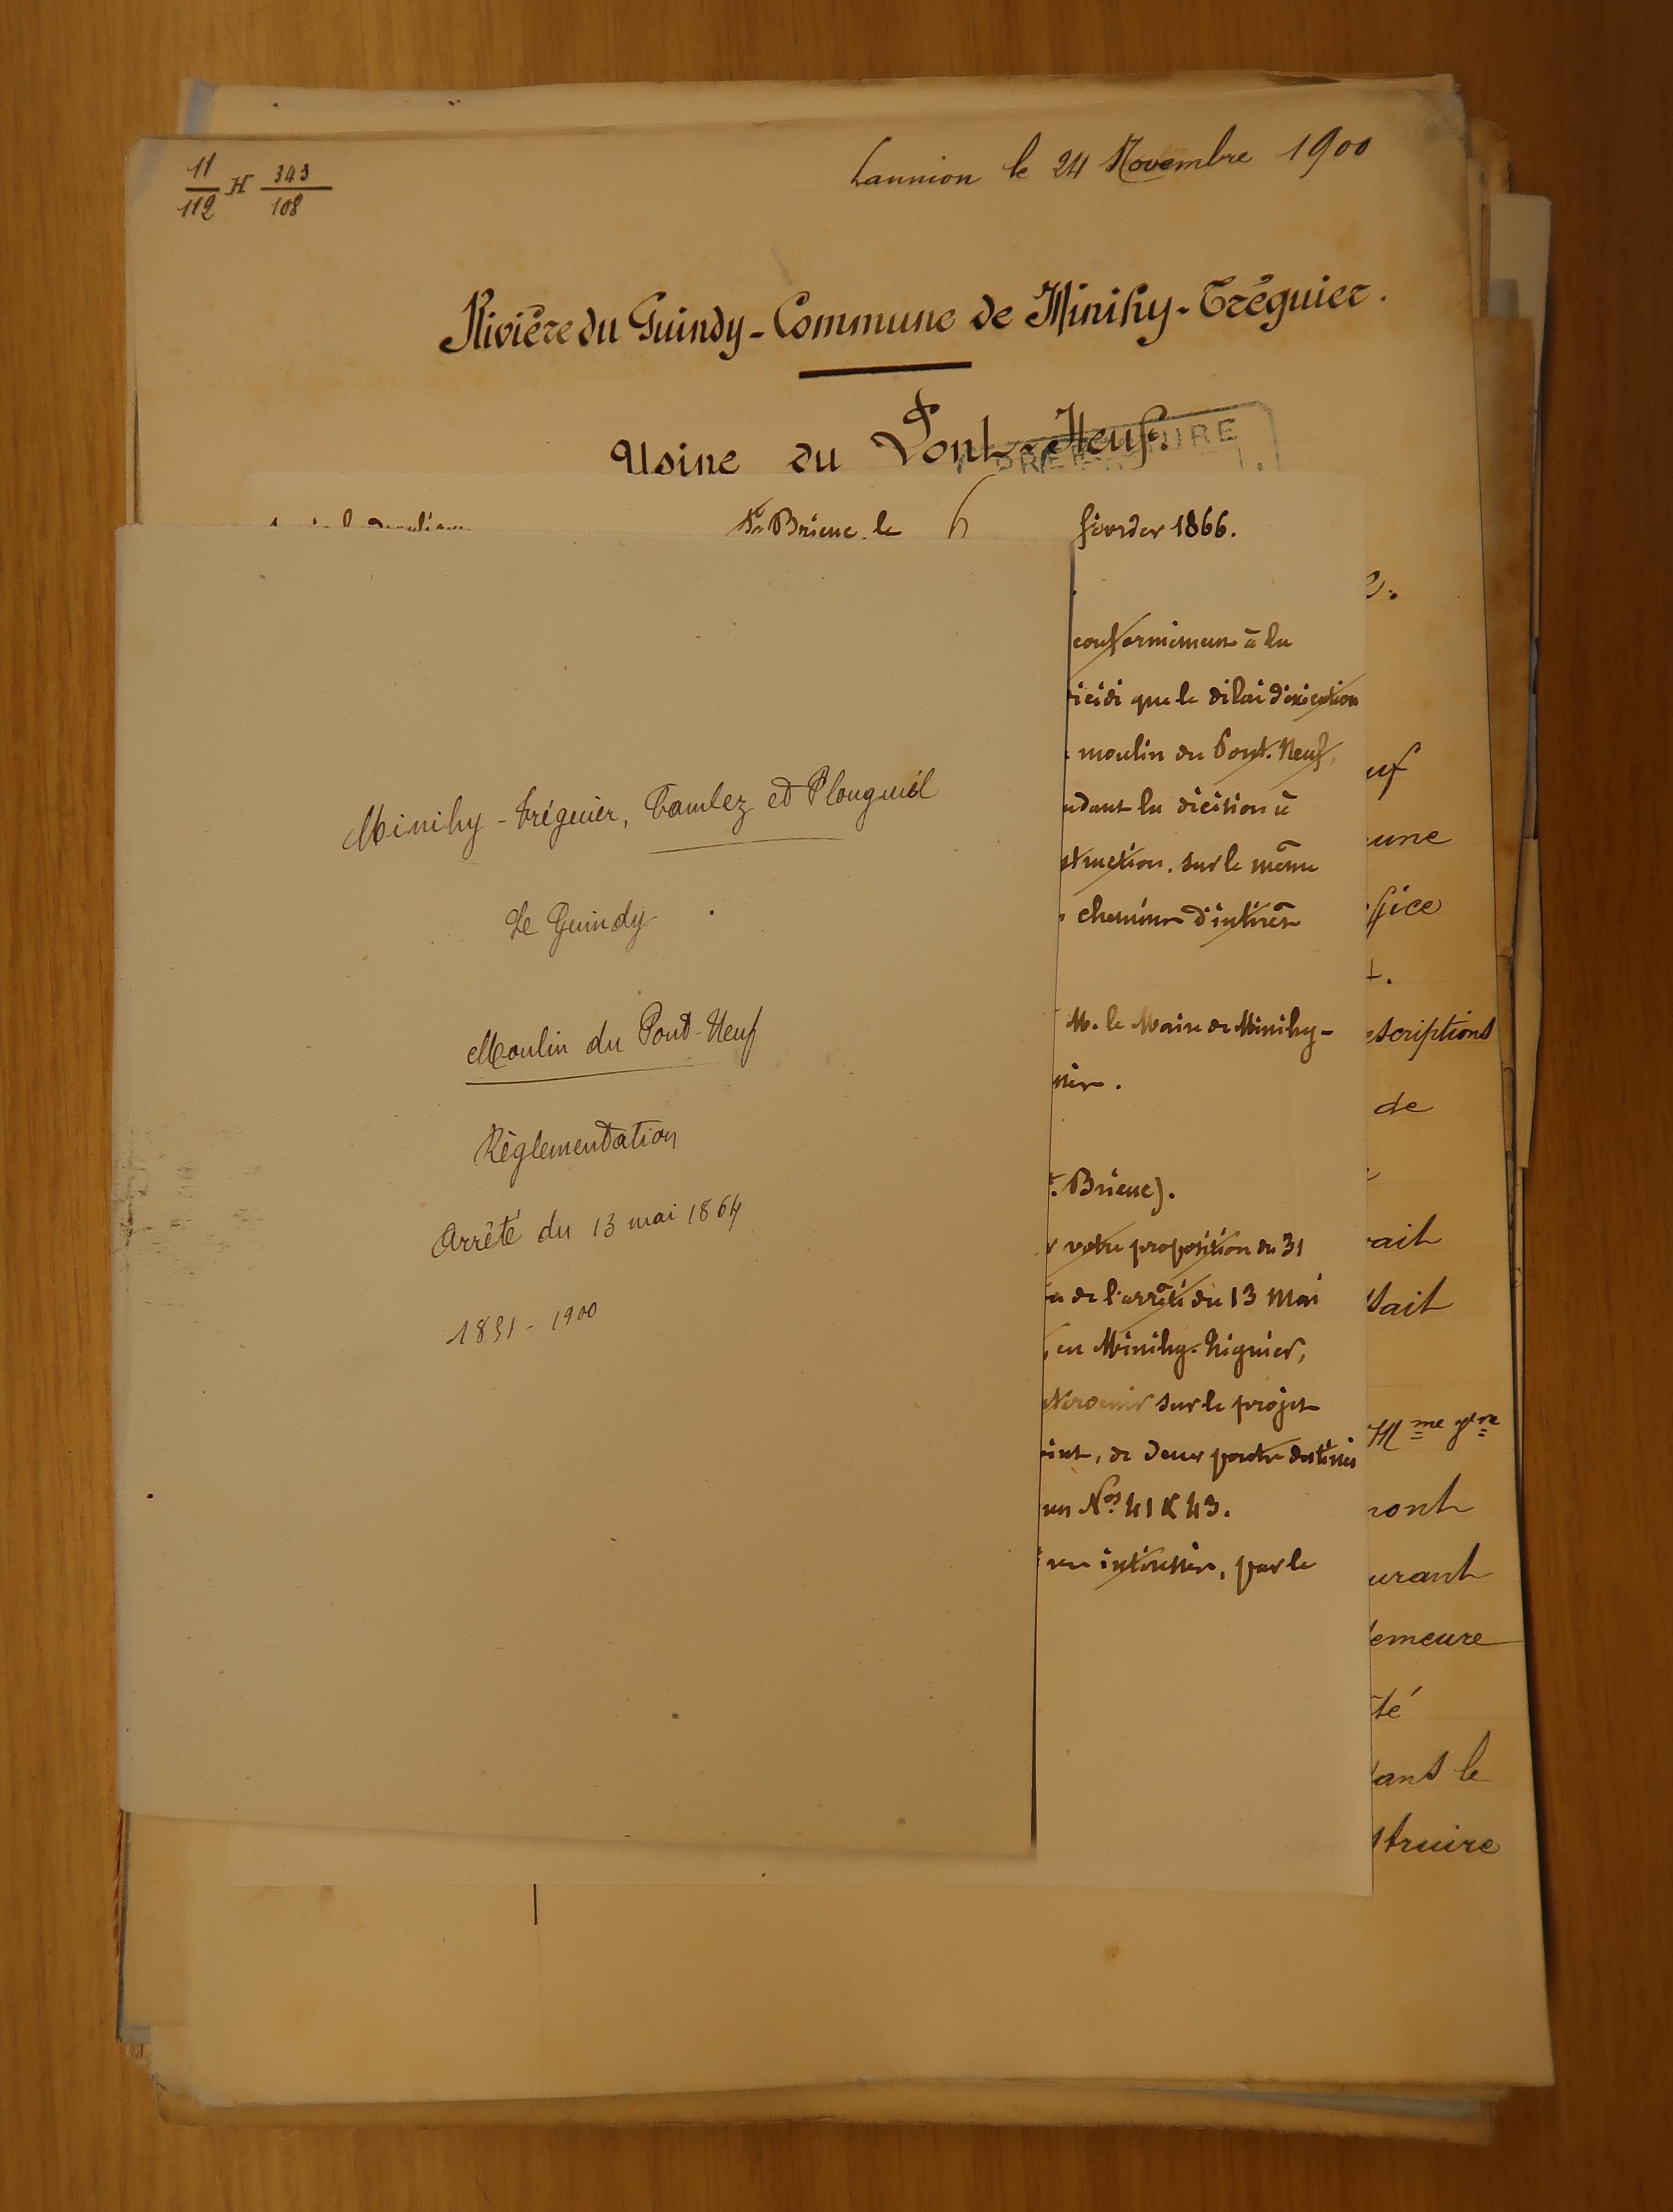 11/112 H 343/108
Lannion le 24 Novembre 1900
Rivière du Guindy - Commune de Minihy-Tréguier.
Usine du Pont-Neuf.
PREFECTURE
St Brieuc, le 6 février 1866.
conformément à la
décidé que le délai d'exécution
moulin du Pont-Neuf,
la décision à
sur le même
chemins d'intérêt
M. le Maire de Minihy-
Brieuc).
votre proposition du 31
de l'arrêté du 13 Mai
en Minihy-Tréguier,
sur le projet
de deux ponts destinés
Nos 41 & 43.
par le
Minihy-Tréguier, Camlez et Plouguiel
Le Guindy
Moulin du Pont-Neuf
Règlementation
Arrêté du 13 mai 1864
1851 - 1900
uf
une
fice
escriptions
de
ait
sait
Mme
ront
urant
demeure
té
dans le
struire